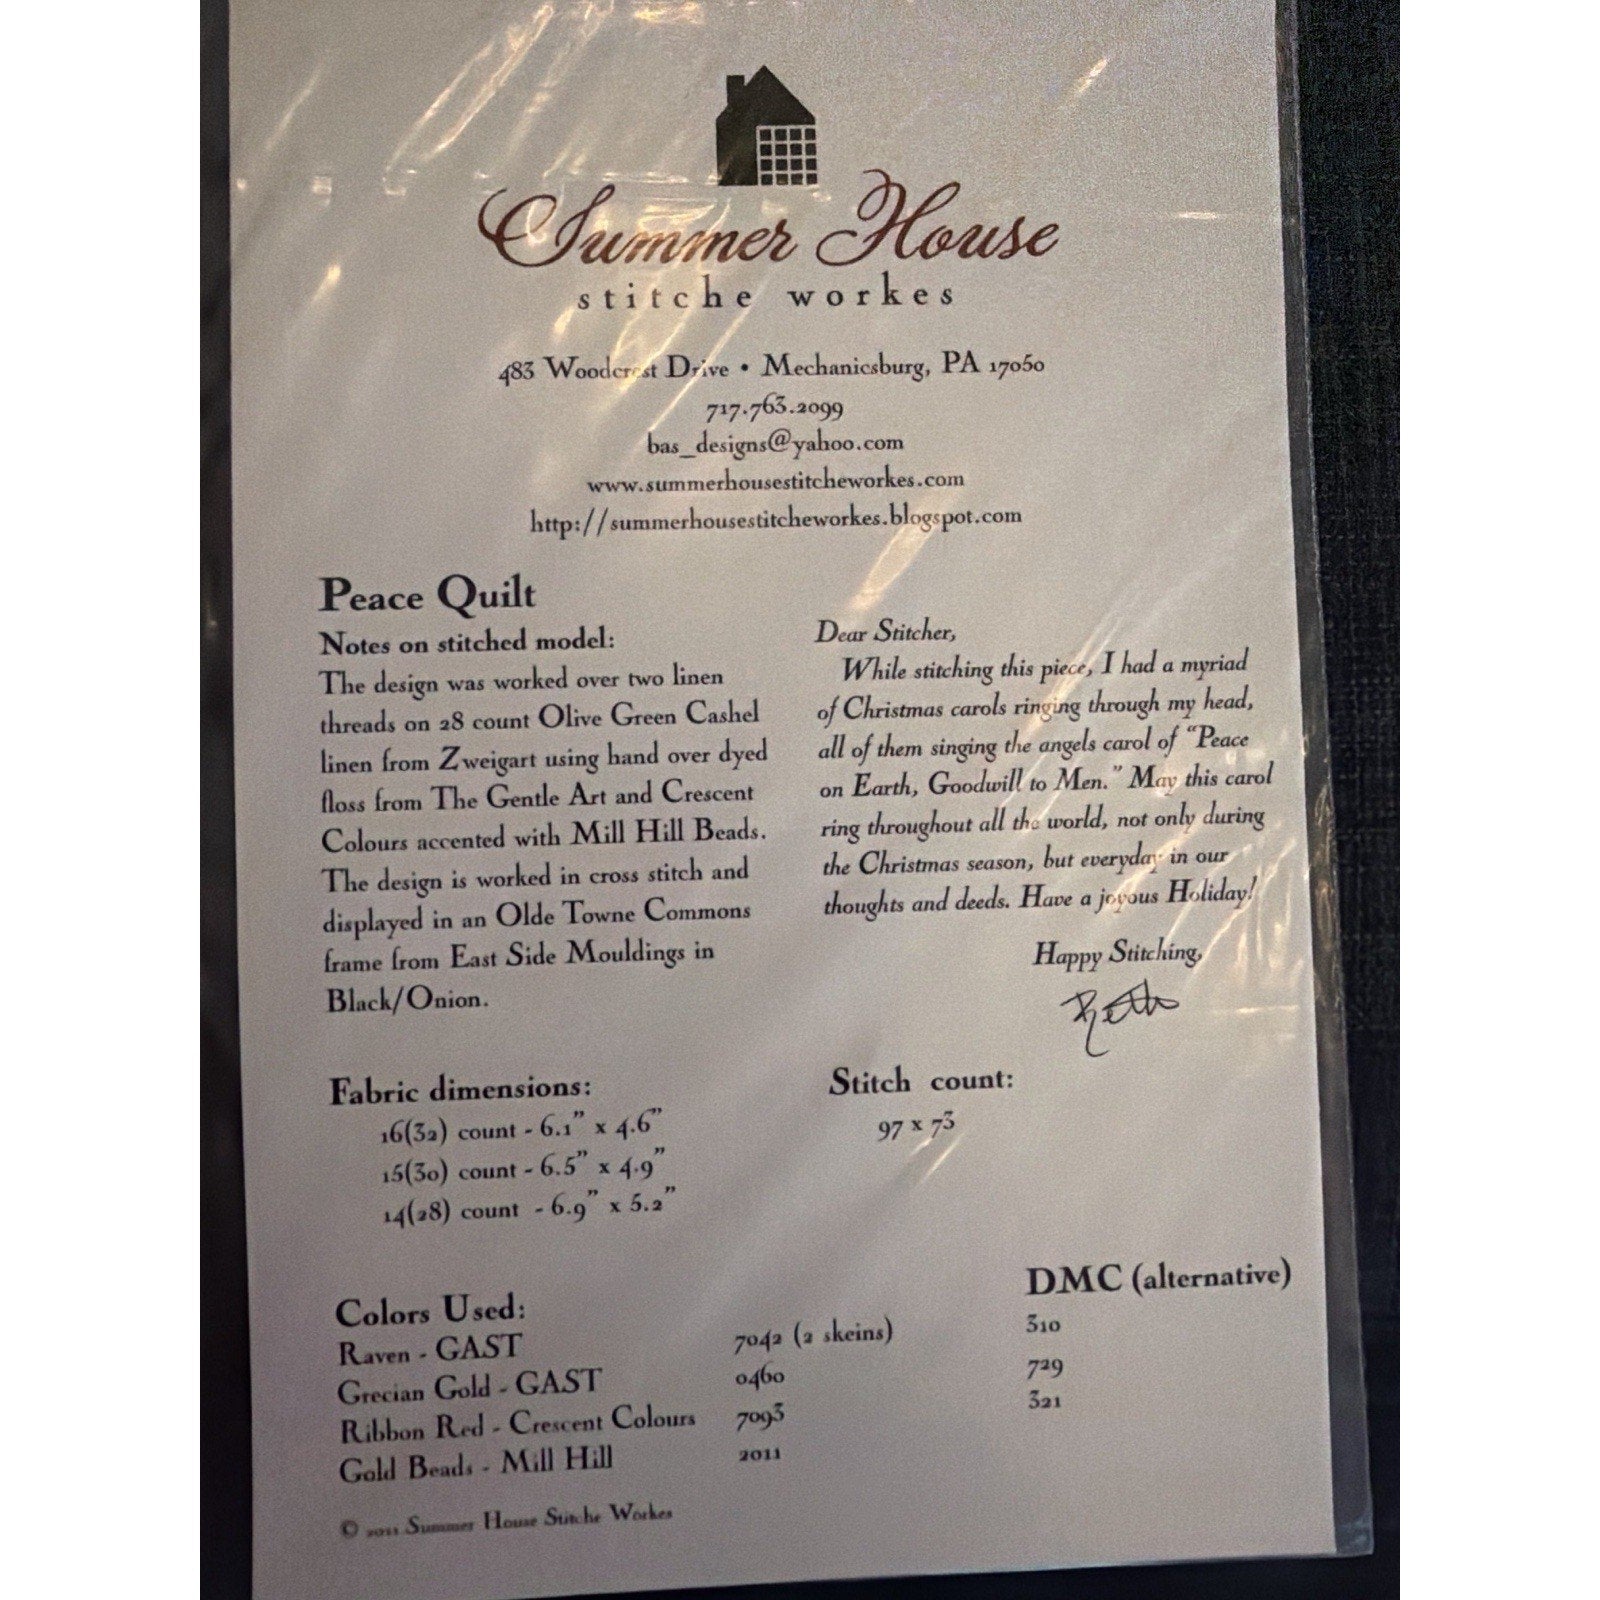 Summer House
stitche workes
483 Woodcrest Drive • Mechanicsburg, PA 17050
717.763.2099
bas_designs@yahoo.com
www.summerhousestitcheworkes.com
http://summerhousestitcheworkes.blogspot.com
Peace Quilt
Notes on stitched model:
The design was worked over two linen
threads on 28 count Olive Green Cashel
linen from Zweigart using hand over dyed
floss from The Gentle Art and Crescent
Colours accented with Mill Hill Beads.
The design is worked in cross stitch and
displayed in an Olde Towne Commons
frame from East Side Mouldings in
Black/Onion.
Dear Stitcher,
While stitching this piece, I had a myriad
of Christmas carols ringing through my head,
all of them singing the angels carol of “Peace
on Earth, Goodwill to Men.” May this carol
ring throughout all the world, not only during
the Christmas season, but everyday in our
thoughts and deeds. Have a joyous Holiday!
Happy Stitching,
Beth
Fabric dimensions:
16(32) count - 6.1” x 4.6”
15(30) count - 6.5” x 4.9”
14(28) count - 6.9” x 5.2”
Stitch count:
97 x 73
Colors Used: DMC (alternative)
Raven - GAST 7042 (2 skeins) 310
Grecian Gold - GAST 0460 729
Ribbon Red - Crescent Colours 7093 321
Gold Beads - Mill Hill 2011
© 2011 Summer House Stitche Workes